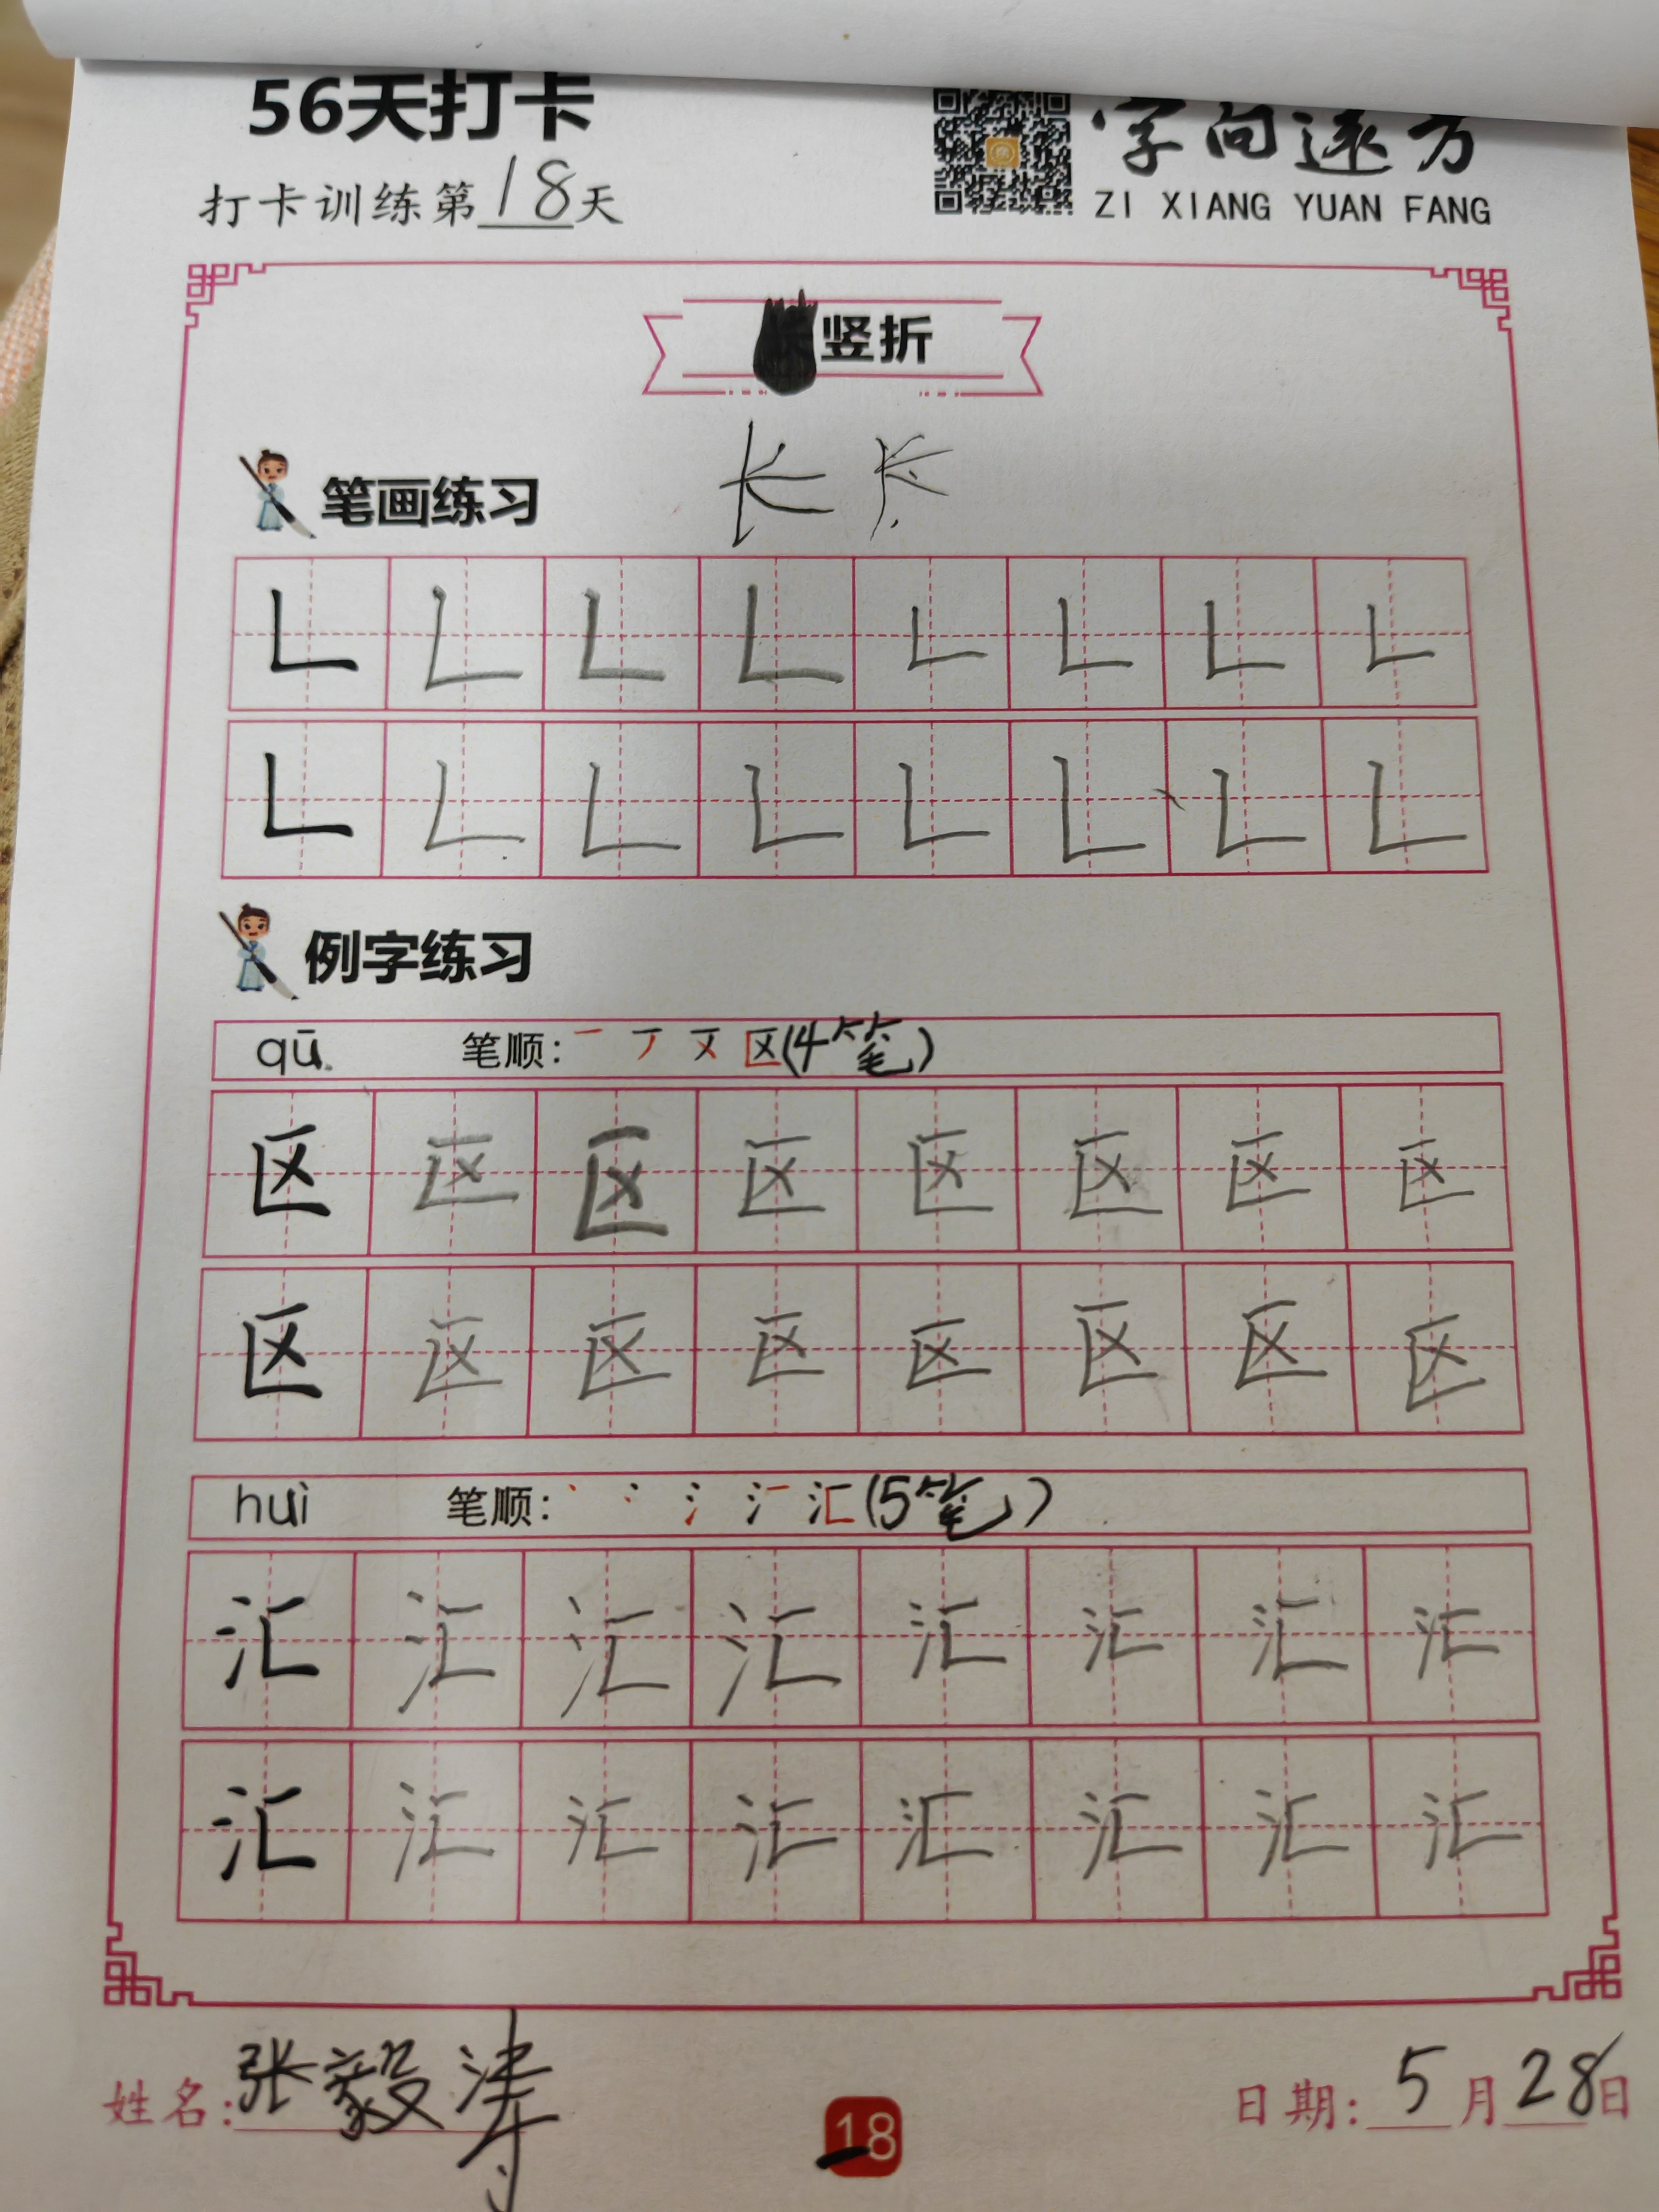 56天打卡
字向远方
打卡训练第18天
ZI XIANG YUAN FANG
竖折
笔画练习
长 长
𠃊 𠃊 𠃊 𠃊 𠃊 𠃊 𠃊 𠃊
𠃊 𠃊 𠃊 𠃊 𠃊 𠃊 𠃊 𠃊
例字练习
qū 笔顺: 一 丆 区(4笔)
区 区 区 区 区 区 区 区
区 区 区 区 区 区 区 区
huì 笔顺: 丶 冫 氵 汇(5笔)
汇 汇 汇 汇 汇 汇 汇 汇
汇 汇 汇 汇 汇 汇 汇 汇
姓名: 张毅涛
日期: 5月28日
18